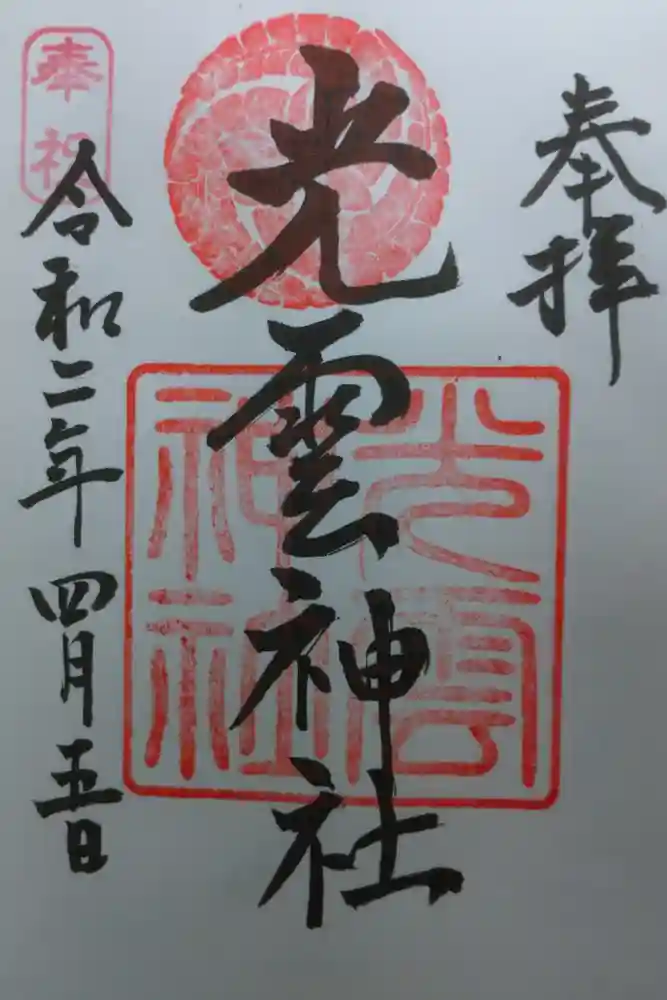 奉拝
光雲神社
光雲
神社
奉祝
令和二年四月五日